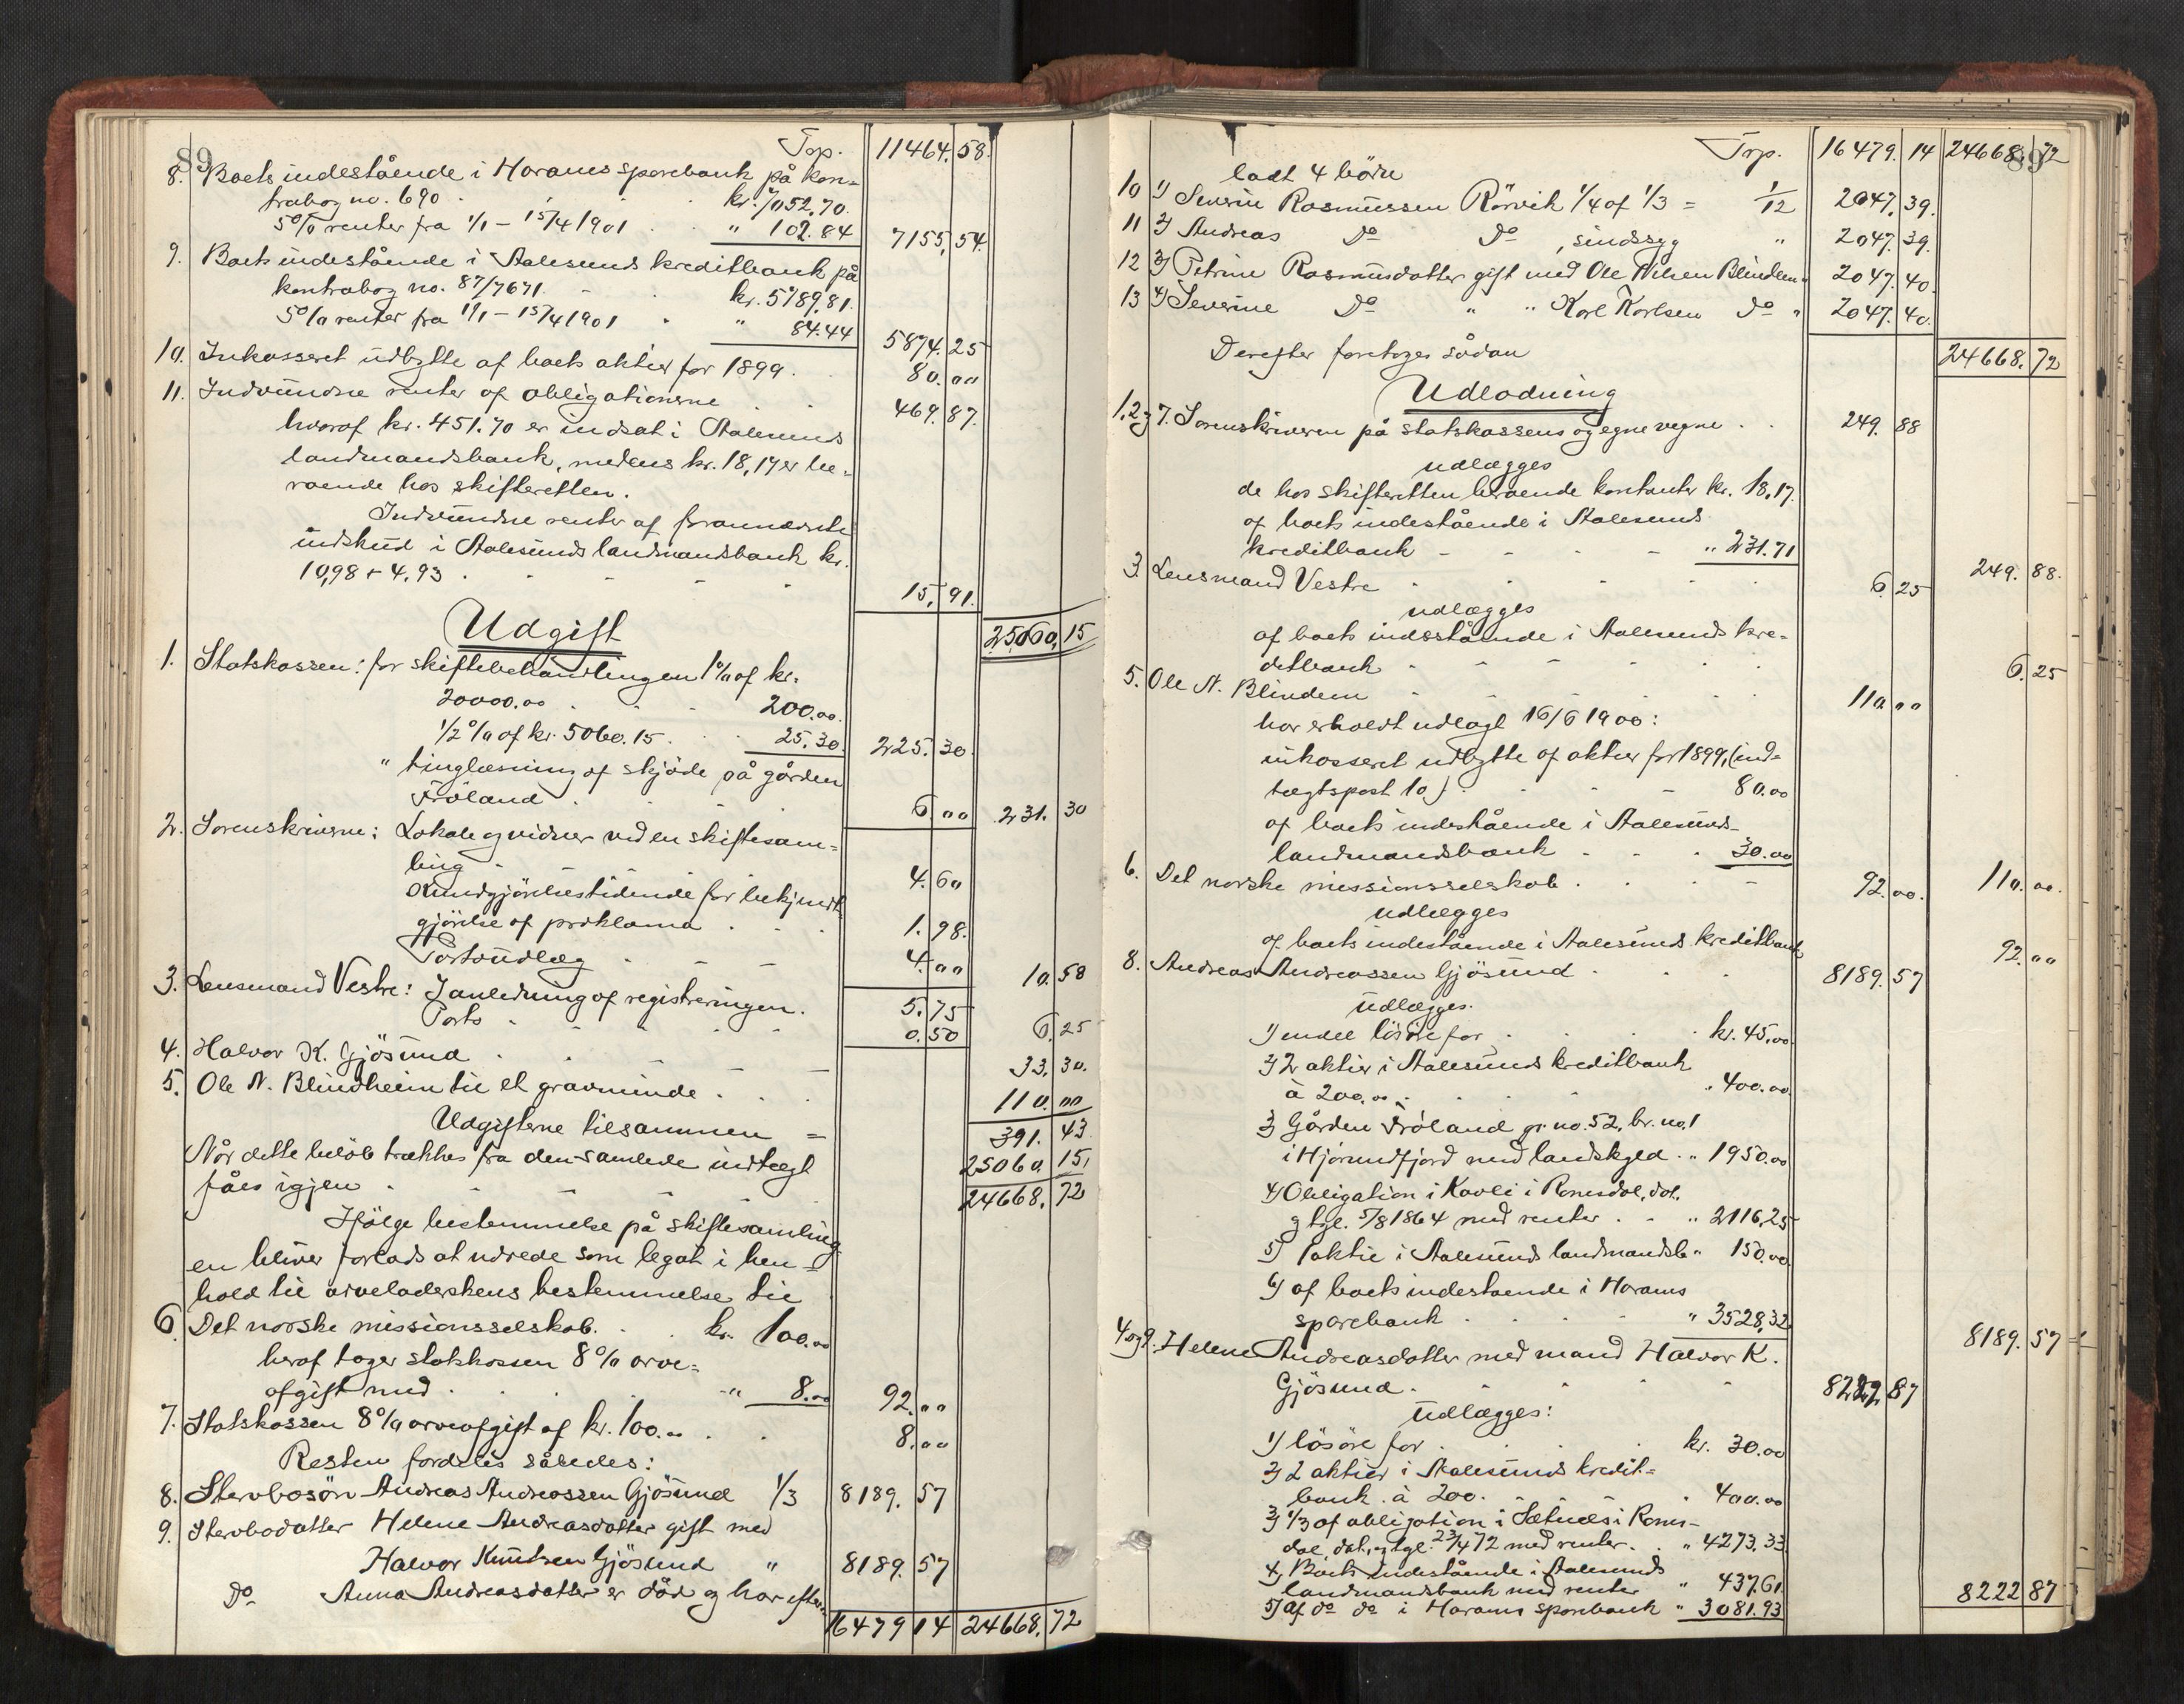 89
Trp. 11464.58.
8. Boets indestående i Harams sparebank på kon-
trabog no. 690 . . kr. 7052.70.
5% renter fra 1/1 - 15/4 1901 . . " 102.84 7155,54.
9. Boets indestående i Aalesunds kreditbank på
kontrabog no. 87/7671. - . kr. 5789,81.
5% renter fra 1/1 - 15/4 1901 . " 84.44 5874.25
10. Inkasseret udbytte af boets aktier for 1899 . . 80.00
11. Indvundne renter af obligationerne . . 469.87.
hvoraf kr. 451.70 er indsat i Aalesunds
landmandsbank, medens kr. 18,17 er be-
roende hos skifteretten.
Indvundne renter af forannævnte
indskud i Aalesunds landmandsbank kr.
10,98 + 4,93 . . - - - 15,91.
25060,15
Udgift
1. Statskassen: for skiftebehandlingen 1% af kr.
20000.00 . . . 200.00.
1/2 % af kr. 5060.15 . . . 25.30. 225.30.
" tinglæsning af skjøde på gården
Fröland . . . . 6.00 231.30
2. Sorenskriveren: Lokale og vidner ved en skiftesam-
ling . . . . 4.60
Kundgjörelsestidende for bekjendt-
gjörelse af proklama . . . 1.98.
Portoudlæg . - - 4.00 10.58
3. Lensmand Vestre: I anledning af registreringen. 5.75
Porto . . . . . . 0.50 6.25
4. Halvor K. Gjösund . . . - - 33.30.
5. Ole N. Blindheim til et gravminde . . . 110.00
Udgifterne tilsammen = 391.43
Når dette belöb trækkes fra den samlede indtægt 25060.15,
fåes igjen . - - - - 24668.72
Ifölge bestemmelse på skiftesamling-
en bliver forlods at udrede som legat i hen-
hold til arveladerskens bestemmelse til
6. Det norske missionsselskab. . . kr. 100.00
heraf tages statskassen 8% arve-
afgift med . . . . " 8.00 92.00
7. Statskassen 8% arveafgift af kr. 100.00 . . 8.00
Resten fordeles således:
8. Stervbosön Andreas Andreassen Gjösund 1/3 8189.57
9. Stervbodatter Helene Andreasdatter gift med
Halvor Knutsen Gjösund " 8189.57
Do Anna Andreasdatter er död og har efter-
16479 14 24668.72
89
Trp. 16479.14 24668.72
ladt 4 börn
10 1) Severin Rasmussen Rörvik 1/4 af 1/3 = 1/12 2047.39.
11 2) Andreas Do Do , sindssyg " 2047.39.
12 3) Petrine Rasmusdatter gift med Ole Nilsen Blindem " 2047.40.
13 4) Severine Do " " Karl Karlsen Do " 2047.40.
24668.72
Derefter foretoges sådan
Udlodning
1.2 og 7. Sorenskriveren på statskassens og egne vegne . . 249.88
udlægges
de hos skifteretten beroende kontanter kr. 18,17.
af boets indestående i Aalesunds
kreditbank - - - - " 231.71
249.88.
3. Lensmand Vestre . . . . . 6.25
udlægges
af boets indestående i Aalesunds kre-
ditbank . - - . . . 6.25
5. Ole N. Blindem . . . . . 110.00
har erholdt udlagt 16/6 1900:
inkasseret udbytte af aktier for 1899, (ind-
tægtspost 10) . . . - - 80.00
af boets indestående i Aalesunds-
landmandsbank . . . 30.00
110.00.
6. Det norske missionsselskab . . . - 92.00.
udlægges
af boets indestående i Aalesunds kreditbank
92.00
8. Andreas Andreassen Gjösund . . . 8189.57
udlægges.
1) endel lösöre for . . . . kr. 45,00.
2) 2 aktier i Aalesunds kreditbank
à 200.00 . . . . " 400.00.
3) Gården Fröland gr. no. 52, br. no. 1
i Hjörundfjord med landskyld . " 1950.00
4) Obligation i Kavli i Romsdal, dat.
og tgl. 5/8 1864 med renter . . " 2116,25
5) 1 aktie i Aalesunds landmandsb. " 150.00
6) af boets indestaende i Harams
sparebank . . . . . " 3528,32
8189.57
4 og 9. Helene Andreasdatter med mand Halvor K.
Gjösund . . . . . 8222 87
udlægges:
1) lösöre for . . . . kr. 30.00
2) 2 aktier i Aalesunds kredit-
bank à 200. . . . " 400.00
3) 1/3 af obligation i Roms-
dal, dat. og tgl. 23/4 72 med renter . . " 4273.33
4) Boets indestående i Aalesunds
landmandsbank med renter " 437.61
5) Af do do i Harams sparebank " 3081.93
8222 87